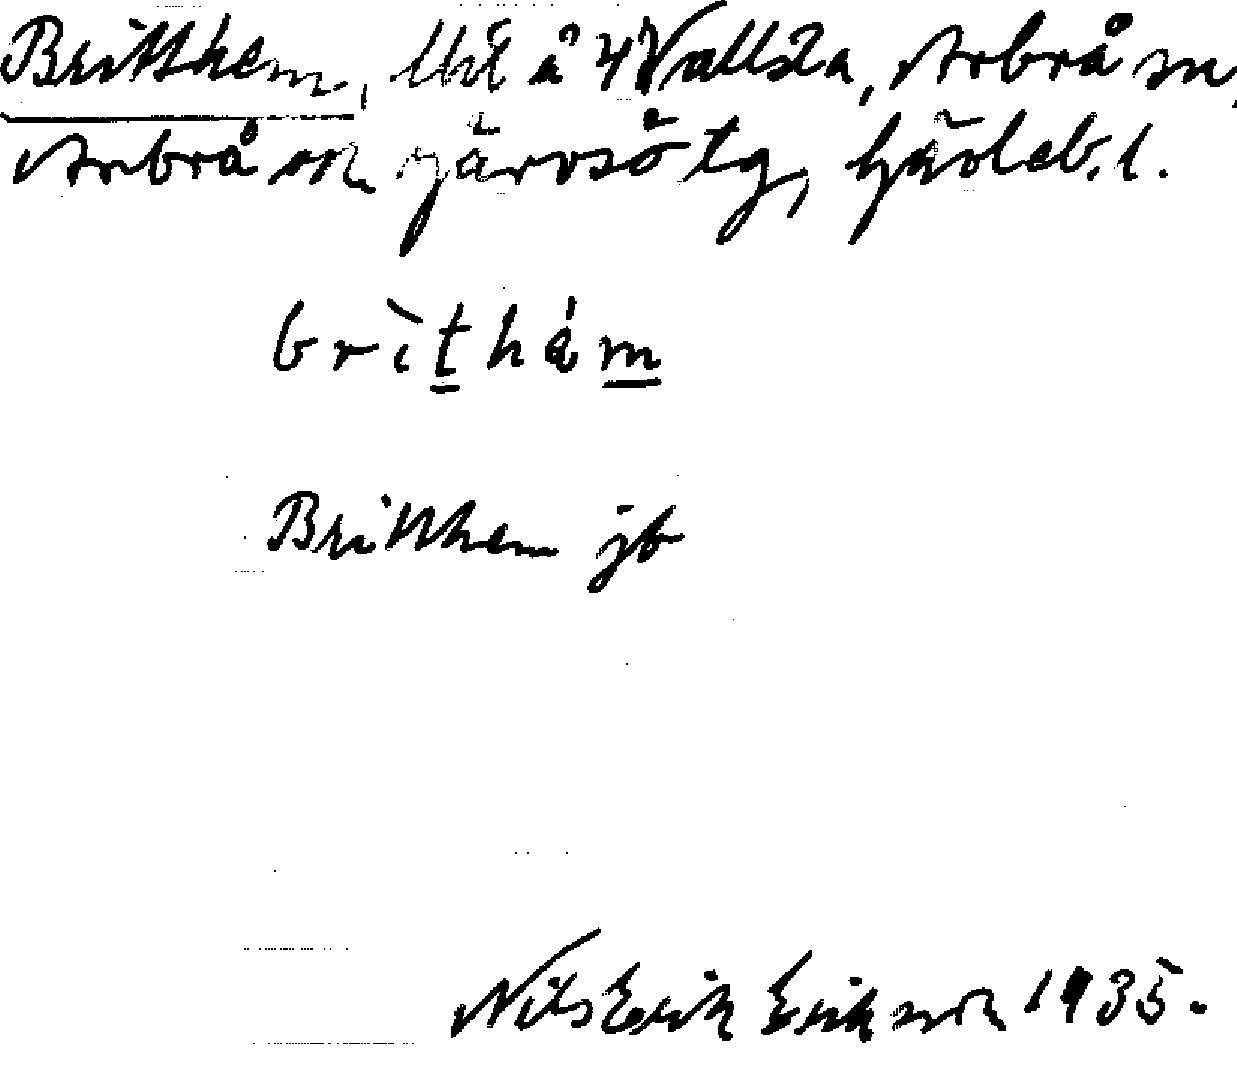 Britthem, lht å 4 Vallsta, Arbrå sn,
Arbrå och Järvsö tg, Gävleb. l.
brìthám
Britthem jb
Nils Erik Erikson 1935.